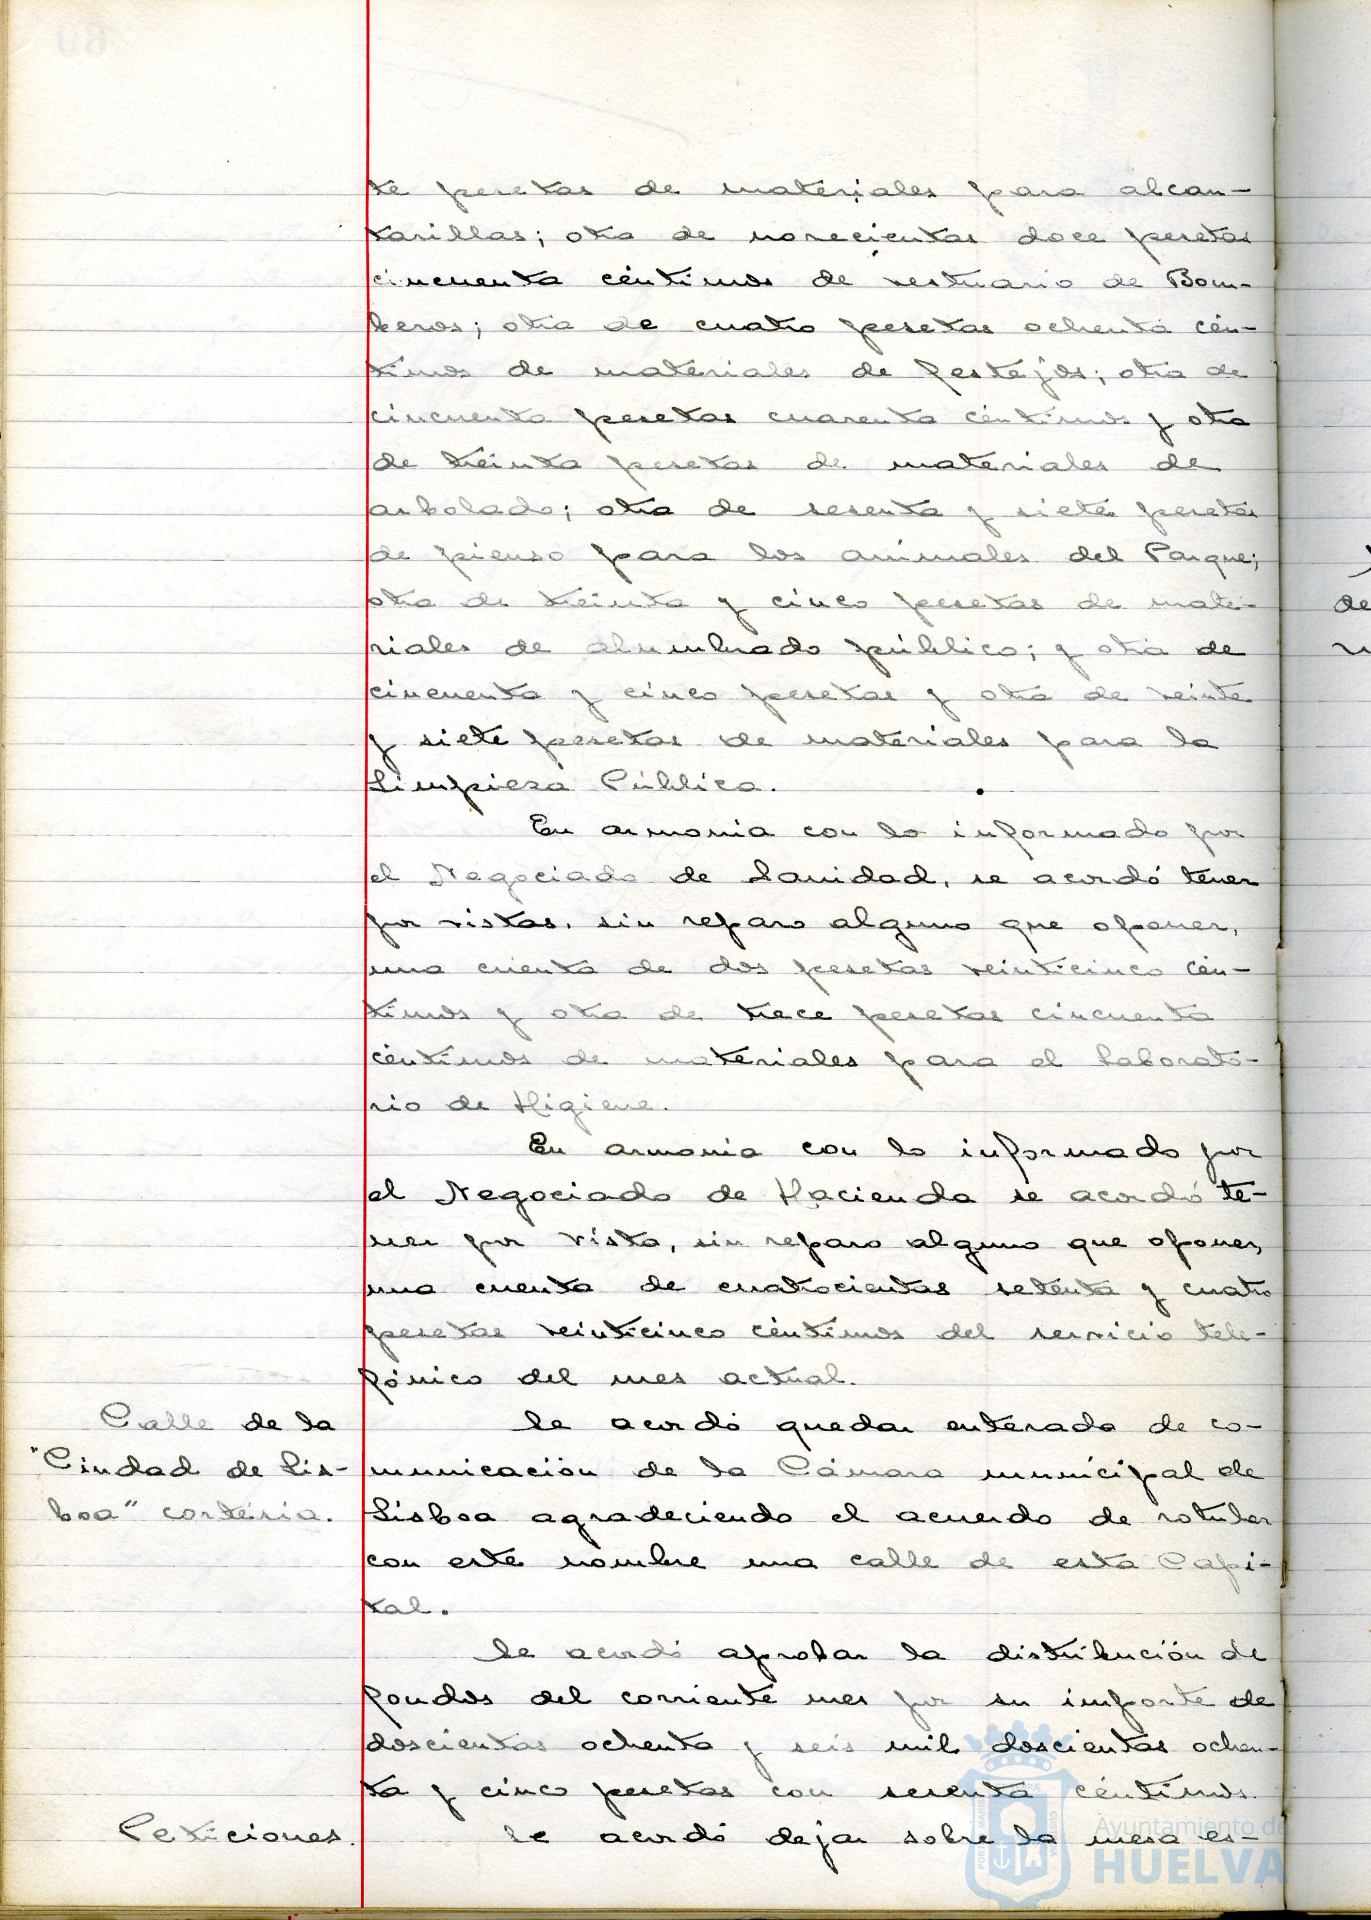 te pesetas de materiales para alcan-
tarillas; otra de novecientas doce pesetas
cincuenta céntimos de vestuario de Bom-
beros; otra de cuatro pesetas ochenta cén-
timos de materiales de festejos; otra de
cincuenta pesetas cuarenta céntimos y otra
de treinta pesetas de materiales de
arbolado; otra de sesenta y siete pesetas
de pienso para los animales del Parque;
otra de treinta y cinco pesetas de mate-
riales de alumbrado público; y otra de
cincuenta y cinco pesetas y otra de veinte
y siete pesetas de materiales para la
Limpieza Pública.
En armonia con lo informado por
el Negociado de Sanidad, se acordó tener
por vistas, sin reparo alguno que oponer,
una cuenta de dos pesetas veinticinco cén-
timos y otra de trece pesetas cincuenta
céntimos de materiales para el Laborato-
rio de Higiene.
En armonia con lo informado por
el Negociado de Hacienda se acordó te-
ner por visto, sin reparo alguno que oponer,
una cuenta de cuatrocientas setenta y cuatro
pesetas veinticinco céntimos del servicio tele-
fónico del mes actual.
Calle de la
"Ciudad de Lis-
boa" cortesia.
Se acordó quedar enterado de co-
municación de la Cámara municipal de
Lisboa agradeciendo el acuerdo de rotular
con este nombre una calle de esta Capi-
tal.
Se acordó aprobar la distribución de
fondos del corriente mes por su importe de
doscientas ochenta y seis mil doscientas ochen-
ta y cinco pesetas con sesenta céntimos.
Peticiones.
Se acordó dejar sobre la mesa es-
Ayuntamiento de
HUELVA